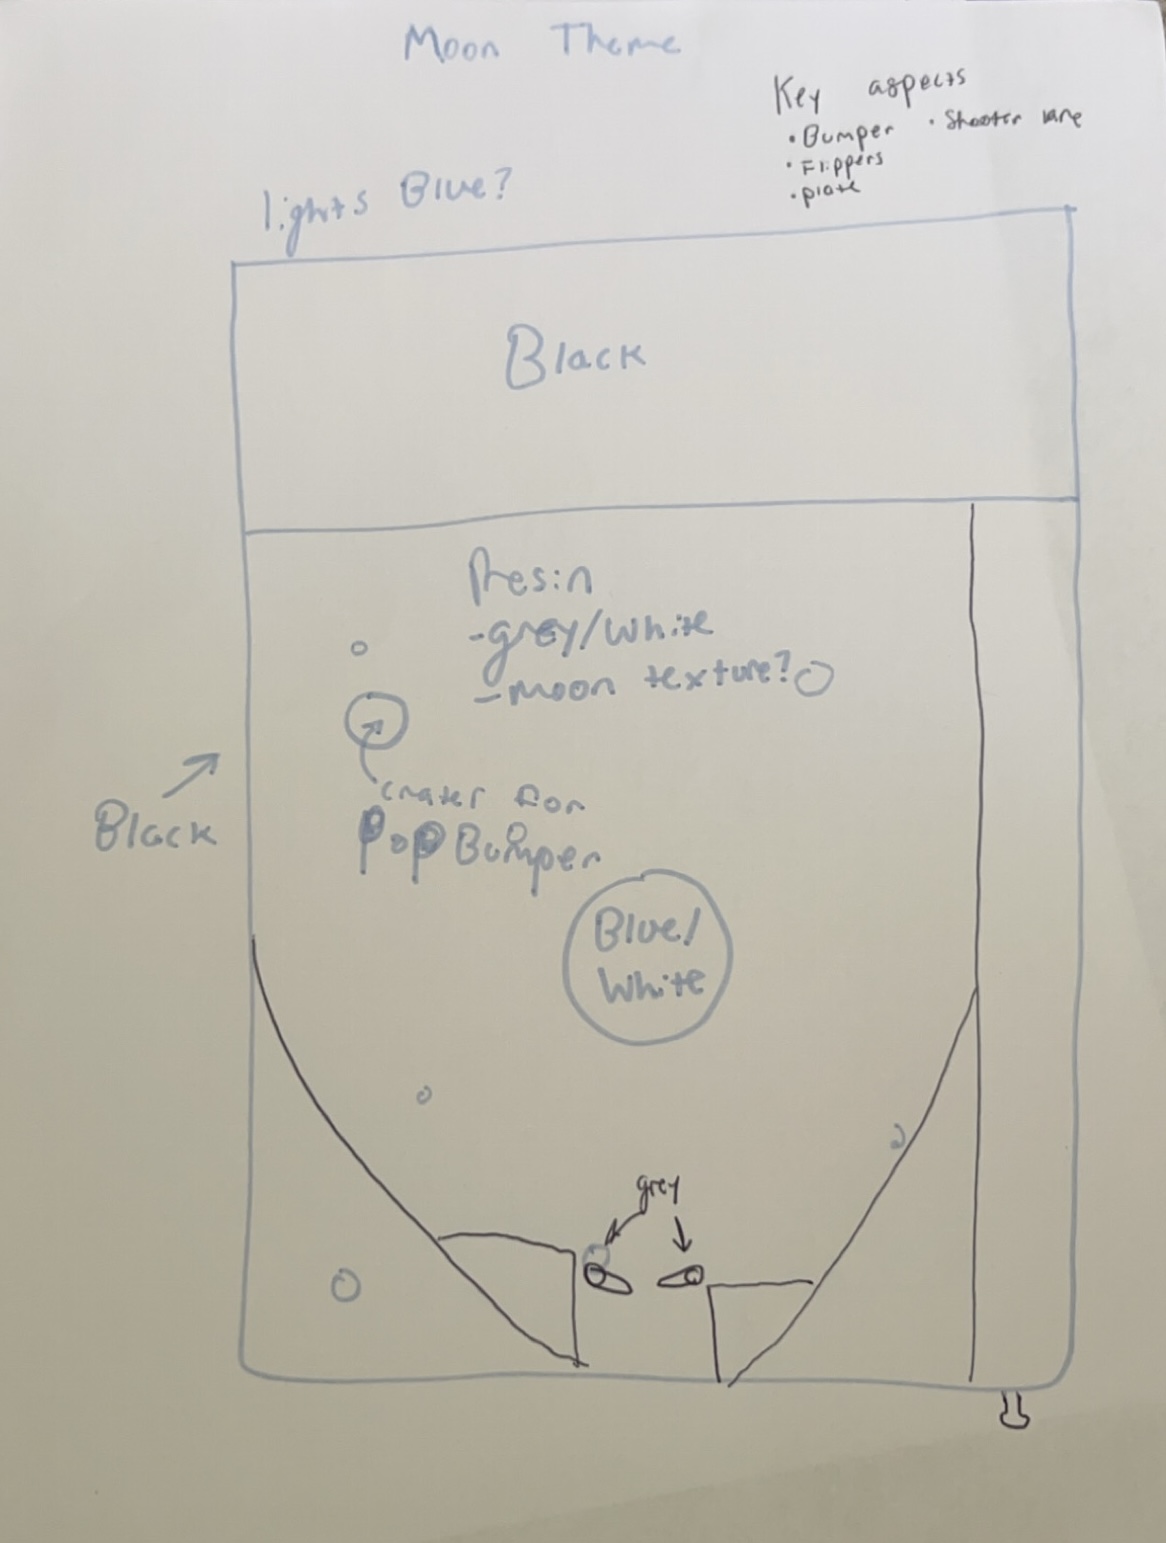 Moon Theme
Key aspects
• Bumper • Shooter lane
• Flippers
• plate
lights Blue?
Black
Resin
-grey/white
-moon texture?
crater for
Pop Bumper
Black
Blue/
White
grey